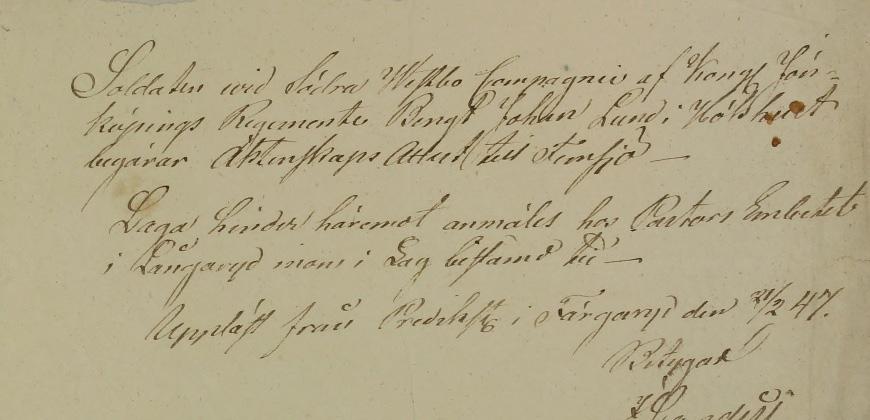 Soldaten wid Södra Westbo Compagnie af Kongl Jön-
köpings Regemente Bengt Johan Lund i Hölshult
begärar Äktenskaps Attest till Femsjö —
Laga hinder häremot anmäles hos Pastors Embetet
i Långaryd inom i Lag bestämd tid —
Uppläst från Predikst i Färgaryd den 21/2 47.
Betygar